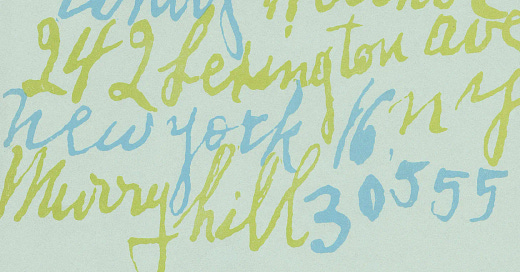 242 Lexington ave
new york 16, n y
Murry hill 30555